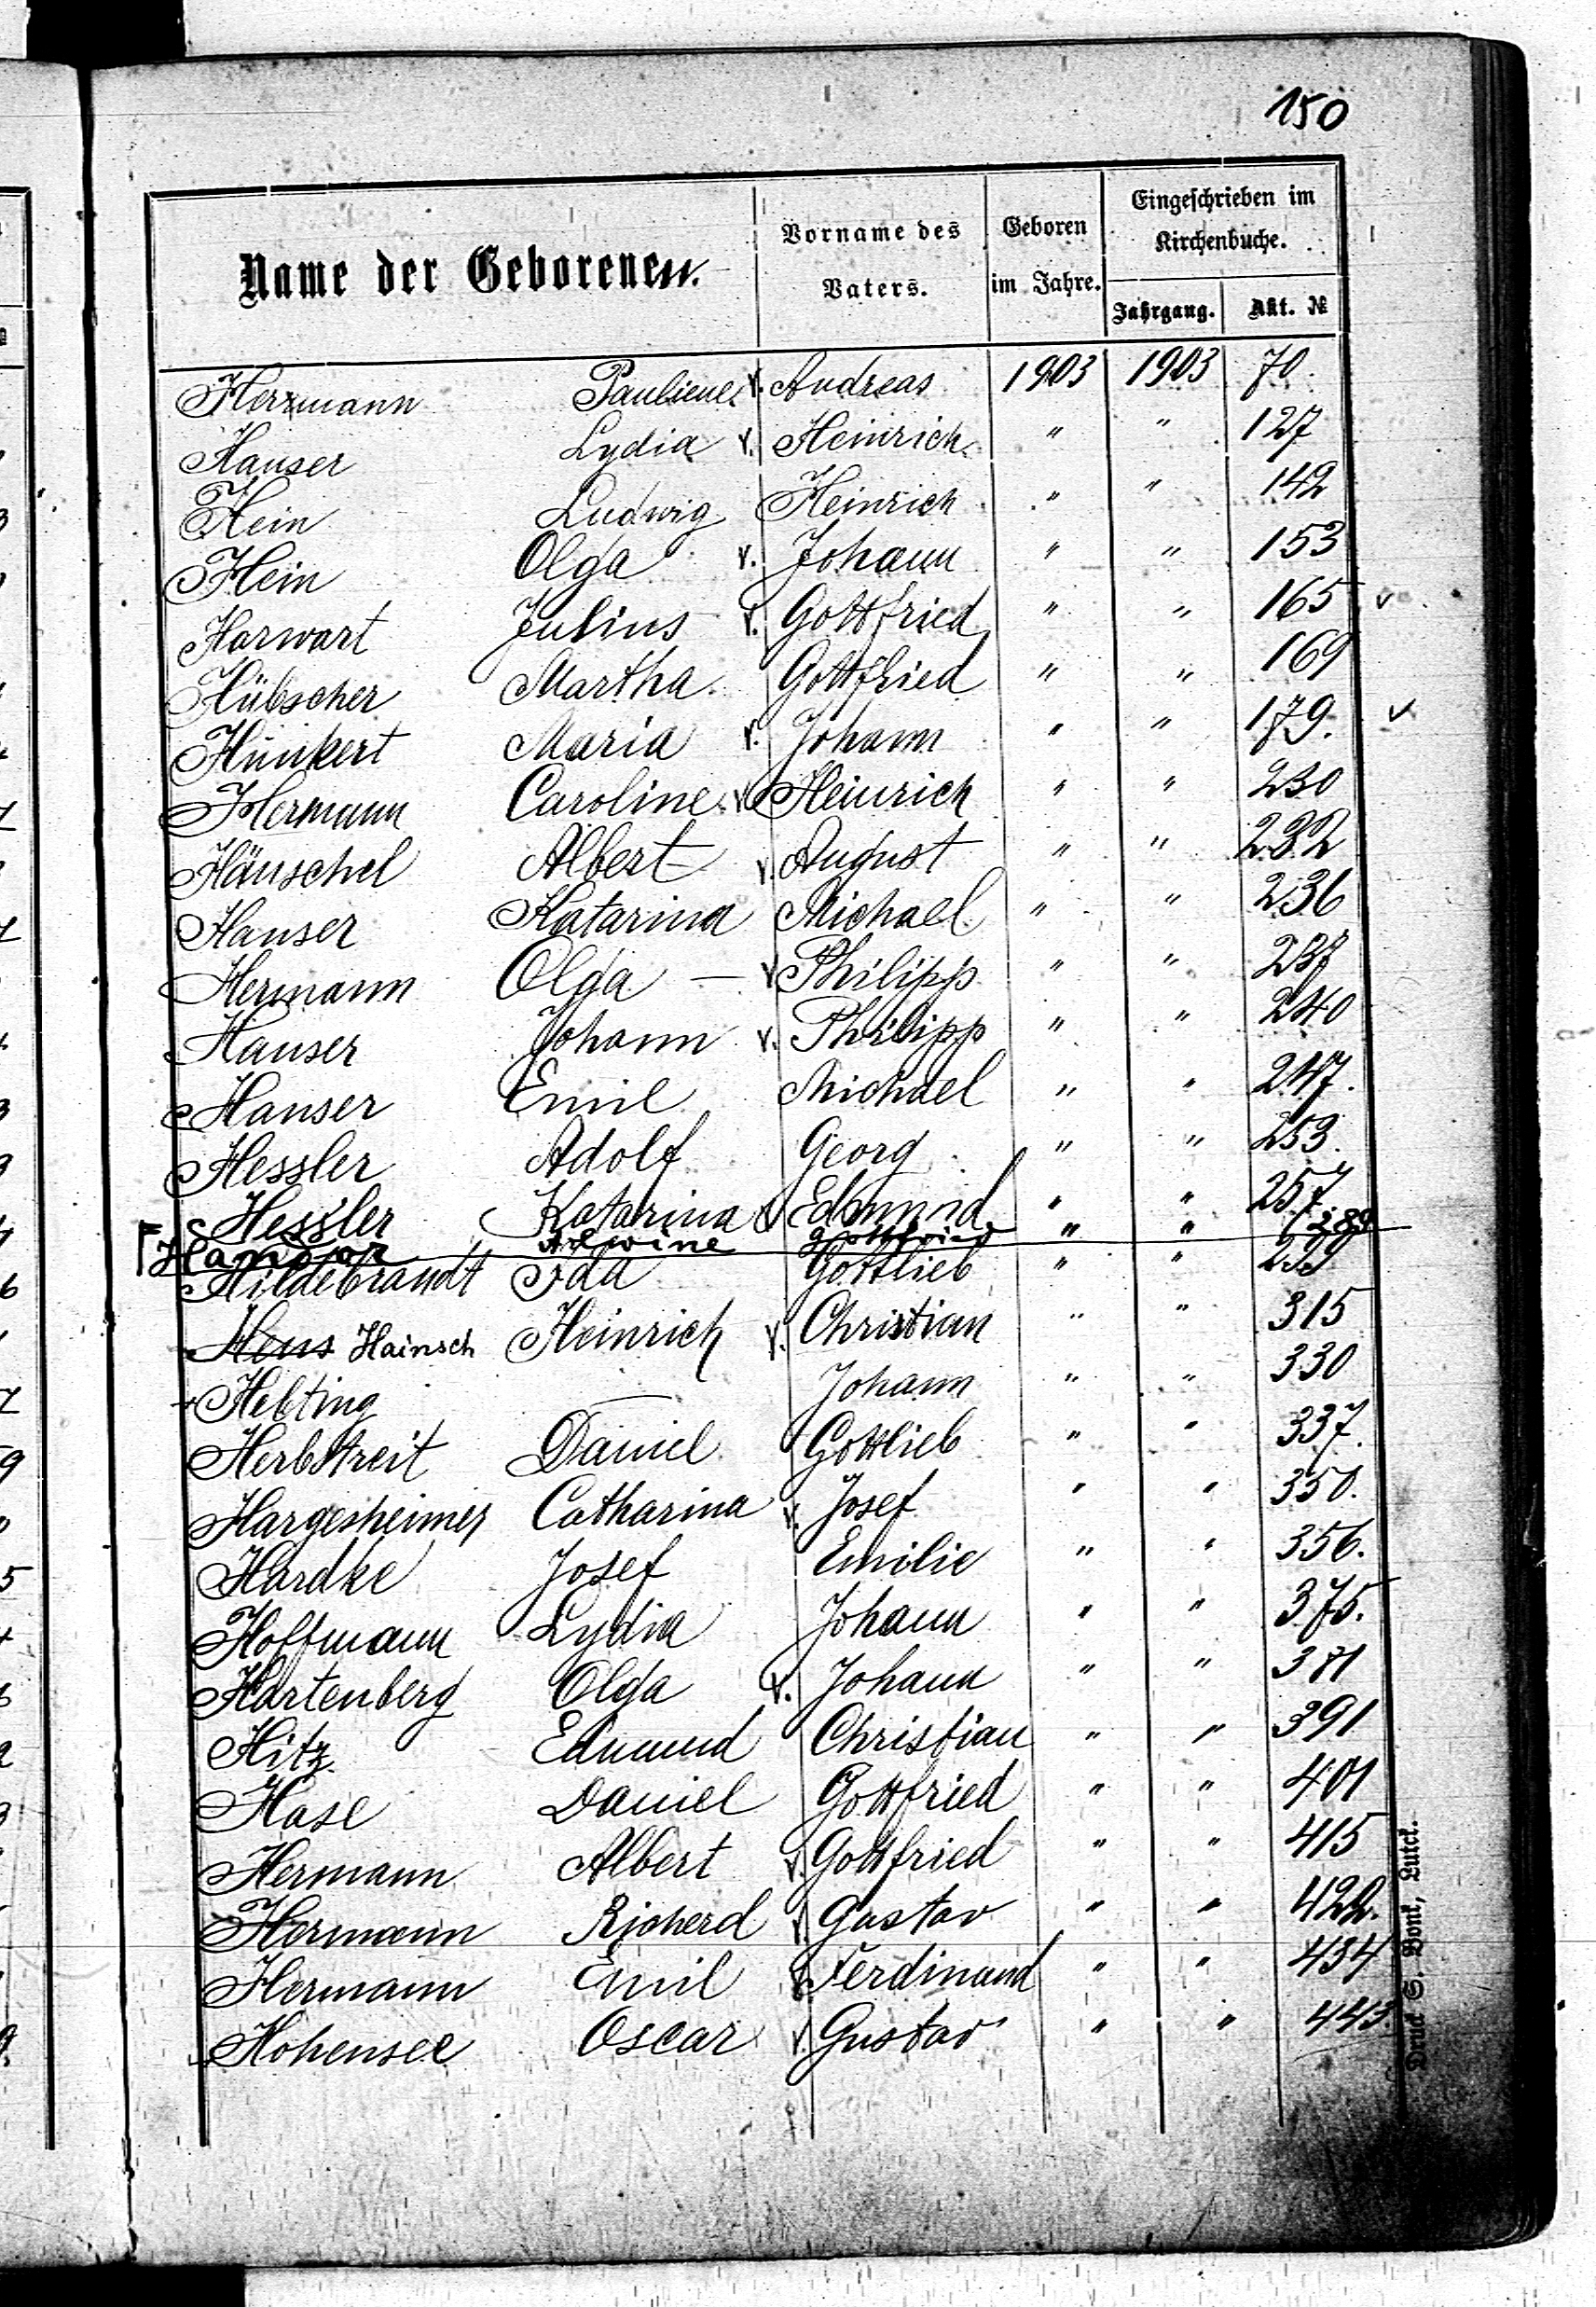 150
Name der Geborenen.
Vorname des Vaters.
Geboren im Jahre.
Eingeschrieben im Kirchenbuche.
Jahrgang. Akt. №
Herrmann Pauliene v. Andreas 1903 1903 70.
Hauser Lydia v. Heinrich " " 127
Hein Ludwig Heinrich " " 142
Hein Olga v. Johann " " 153
Harwart Julius v. Gottfried " " 165 v
Hübscher Martha. Gottfried " " 169
Hünkert Maria v. Johann " " 179. v
Hermann Caroline v. Heinrich " " 230
Häuschel Albert v. August " " 232
Hauser Katarina Michael " " 236
Hermann Olga — v Philipp " " 237
Hauser Johann v. Philipp " " 240
Hauser Emil Michael " " 247.
Hessler Adolf Georg " " 253.
Hessler Katarina v Edmund " " 257
Alwine Gottfried " " 289
Hildebrandt Ida Gottlieb " "
Hens Hainsch Heinrich v. Christian " " 315
Helting — Johann " " 330
Herbstreit Daniel Gottlieb " " 337.
Hargesheimer Catharina v. Josef " " 350.
Hardke Josef Emilie " " 356.
Hoffmann Lydia Johann " " 375.
Hartenberg Olga v. Johann " " 381
Hitz Edmund Christian " " 391
Hase Daniel Gottfried " " 401
Hermann Albert v. Gottfried " " 415
Hermann Richerd v Gustav " " 422.
Hermann Emil v Ferdinand " " 434
Hohensee Oscar v. Gustav " " 443.
Druck S. Bonk, Lutck.